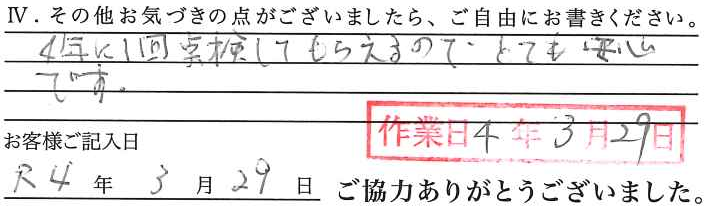 Ⅳ. その他お気づきの点がございましたら、ご自由にお書きください。
4年に1回点検してもらえるので、とても安心
です。
作業日4年3月29日
お客様ご記入日
R4年3月29日
ご協力ありがとうございました。